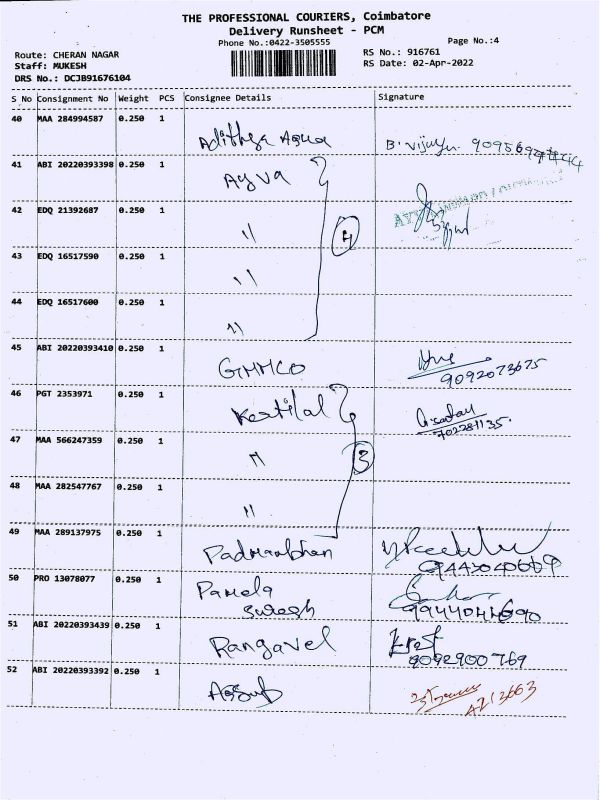 THE PROFESSIONAL COURIERS, Coimbatore
Delivery Runsheet - PCM
Phone No.:0422-3505555
Page No.:4
Route: CHERAN NAGAR
RS No.: 916761
Staff: MUKESH
RS Date: 02-Apr-2022
DRS No.: DCJB91676104
S No Consignment No Weight PCS Consignee Details Signature
40 MAA 284994587 0.250 1
Adithya Aqua B. Vijay
41 ABI 20220393398 0.250 1
Ayva
42 EDQ 21392687 0.250 1
" 4
43 EDQ 16517590 0.250 1
"
44 EDQ 16517600 0.250 1
"
45 ABI 20220393410 0.250 1
GMMCO
9092073675
46 PGT 2353971 0.250 1
Kertilal
702281135.
47 MAA 566247359 0.250 1
" 3
48 MAA 282547767 0.250 1
"
49 MAA 289137975 0.250 1
Padmanbhan
50 PRO 13078077 0.250 1
Pamela
Suresh
51 ABI 20220393439 0.250 1
Rangavel
9092900769
52 ABI 20220393392 0.250 1